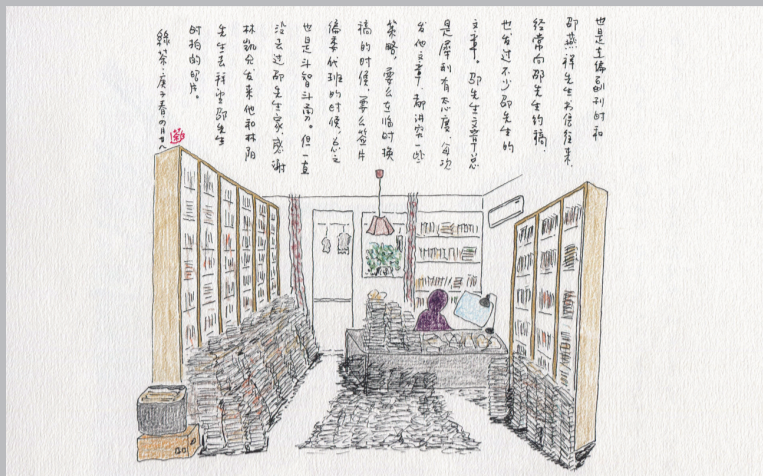 也是主编副刊时和
邵燕祥先生书信往来,
经常向邵先生约稿,
也发过不少邵先生的
文章。邵先生文章总
是犀利有态度,每次
发他文章,都讲究一些
策略,要么在临时换
稿的时候,要么签片
编委代班的时候,总之
也是斗智斗勇。但一直
没去过邵先生家,感谢
林凯兄发来他和林阳
先生去拜望邵先生
时拍的照片。
綠茶·庚子春の月廿八